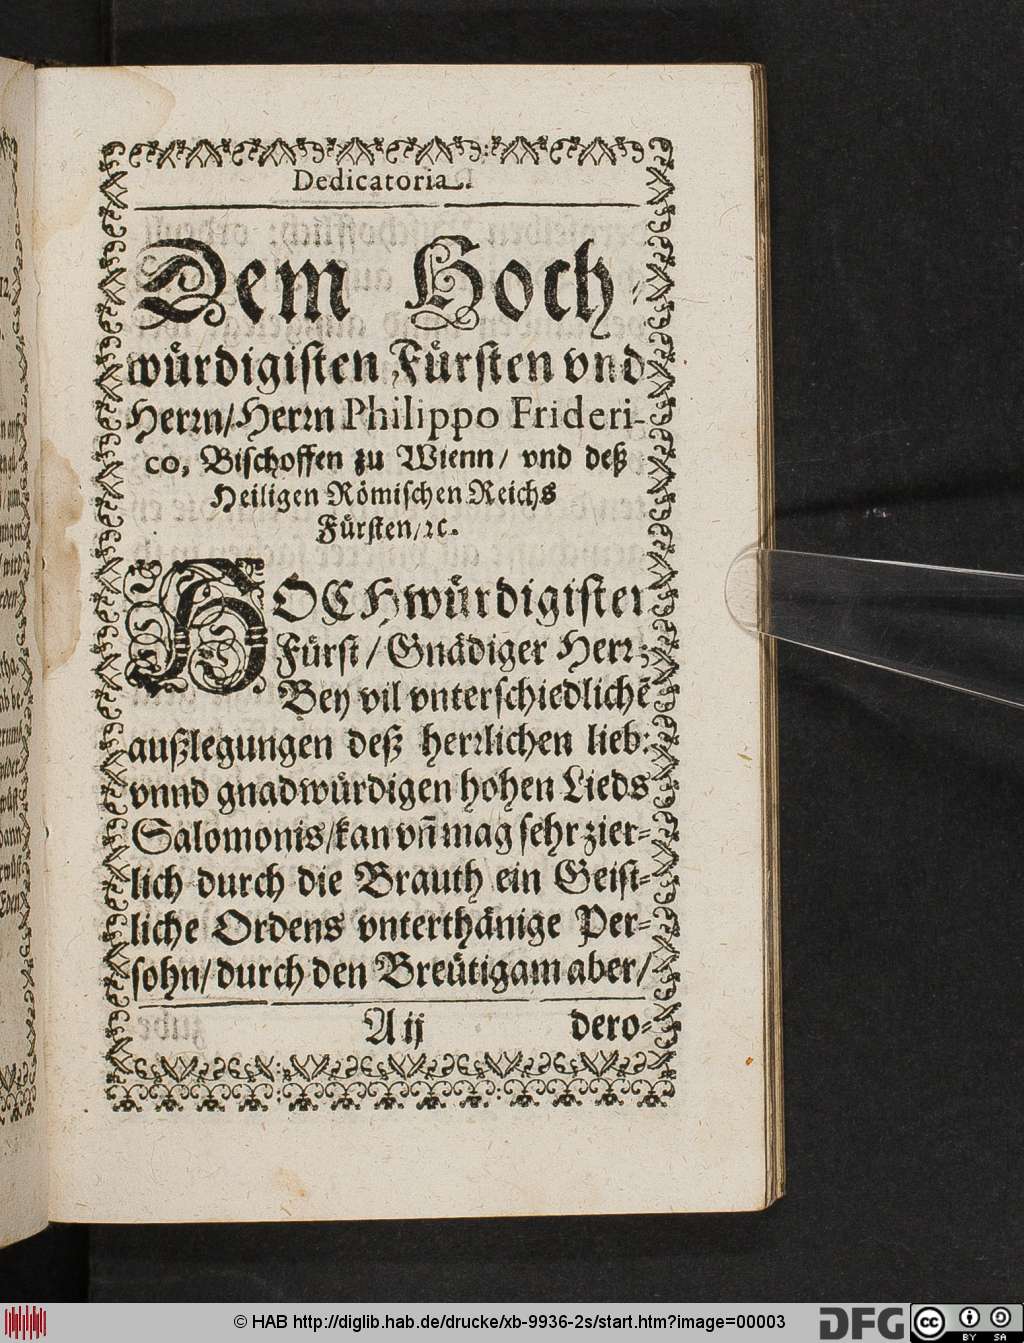 Dedicatoria.
Dem Hoch-
würdigisten Fürsten vnd
Herrn/Herrn Philippo Frideri-
co, Bischoffen zu Wienn/ vnd deß
Heiligen Römischen Reichs
Fürsten/ꝛc.
HOCHwürdigister
Fürst/Gnädiger Herr;
Bey vil vnterschiedlichẽ
außlegungen deß herrlichen lieb:
vnnd gnadwürdigen hohen Lieds
Salomonis/kan vñ mag sehr zier-
lich durch die Brauth ein Geist-
liche Ordens vnterthänige Per-
sohn/durch den Breütigam aber/
A ij dero-
© HAB http://diglib.hab.de/drucke/xb-9936-2s/start.htm?image=00003
DFG
cc BY SA